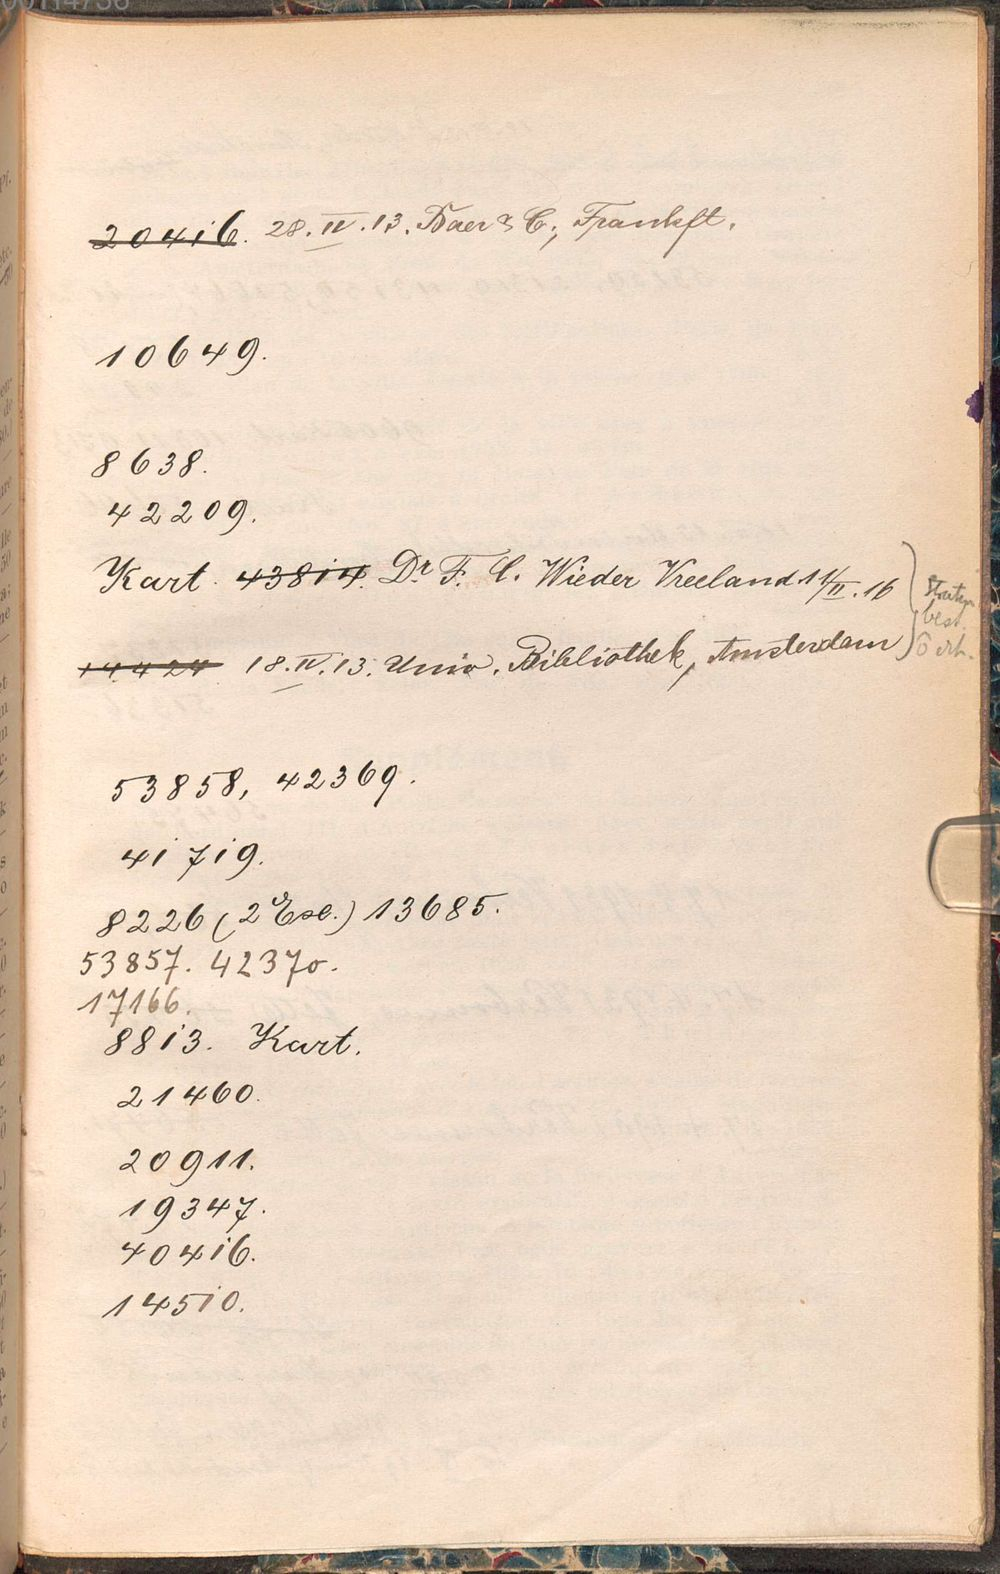 20416. 28.IV.13. Baer & C., Frankft.
10649.
8638.
42209.
Kart. 43814. Dr F. C. Wieder Vreeland 11/II.16
best.
14424 18.IV.13. Univ. Bibliothek, Amsterdam
53858, 42369.
41719.
8226 (2 Exl.) 13685.
53857. 42370.
17166.
8813. Kart.
21460.
20911.
19347.
40416.
14510.